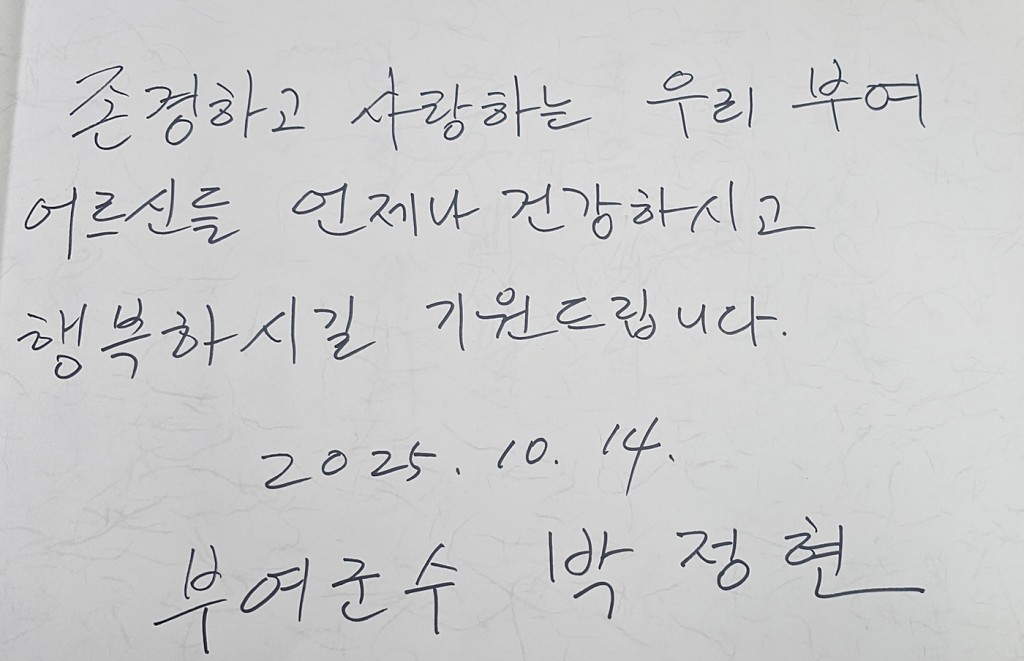 존경하고 사랑하는 우리 부여
어르신들 언제나 건강하시고
행복하시길 기원드립니다.
2025. 10. 14.
부여군수 박정현